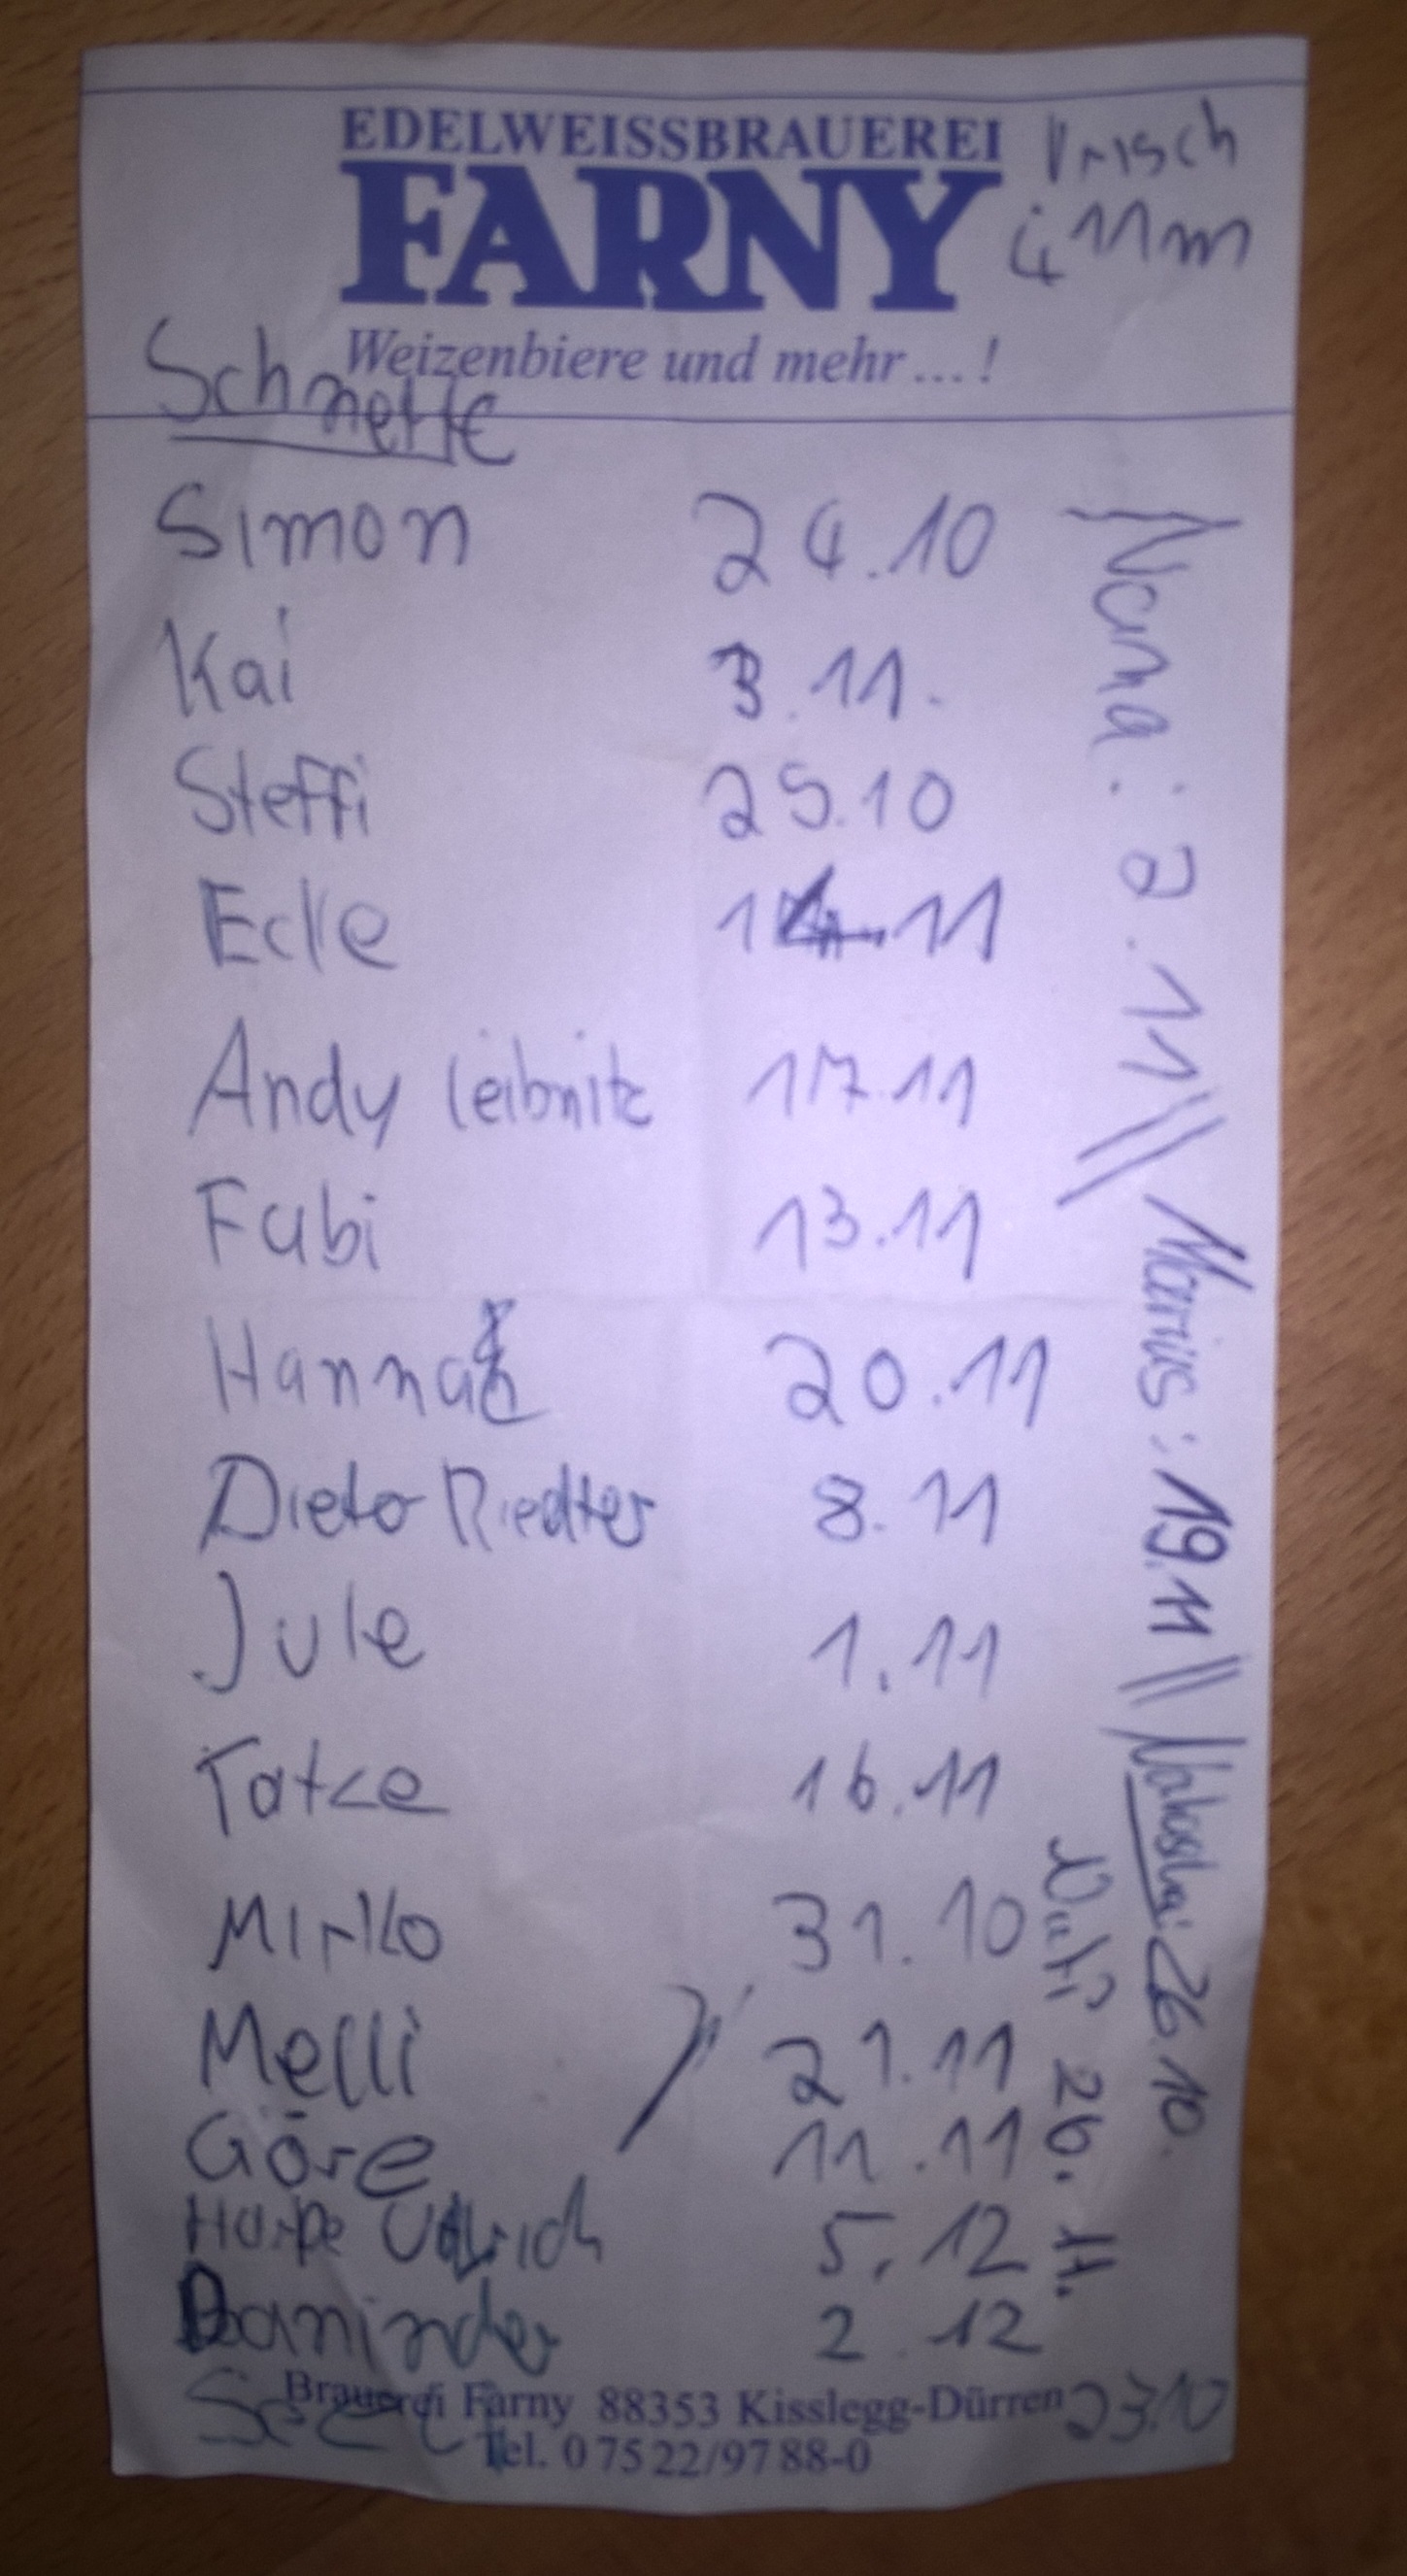 EDELWEISSBRAUEREI
FARNY
Weizenbiere und mehr ... !
Simon 24.10
Kai 3.11.
Steffi 25.10
Ecke 11
Andy Leibnitz 17.11
Fabi 13.11
Hannah 20.11
Dieter 8.11
Jule 1.11
Tatze 16.11
Mirko 31.10
Melli 21.11
Göre 11.11
5.12
2.12
23.10
Brauerei Farny 88353 Kisslegg-Dürren
Tel. 0 75 22/97 88-0
: 2.11 // Marius: 19.11 // 26.10.
26.11.